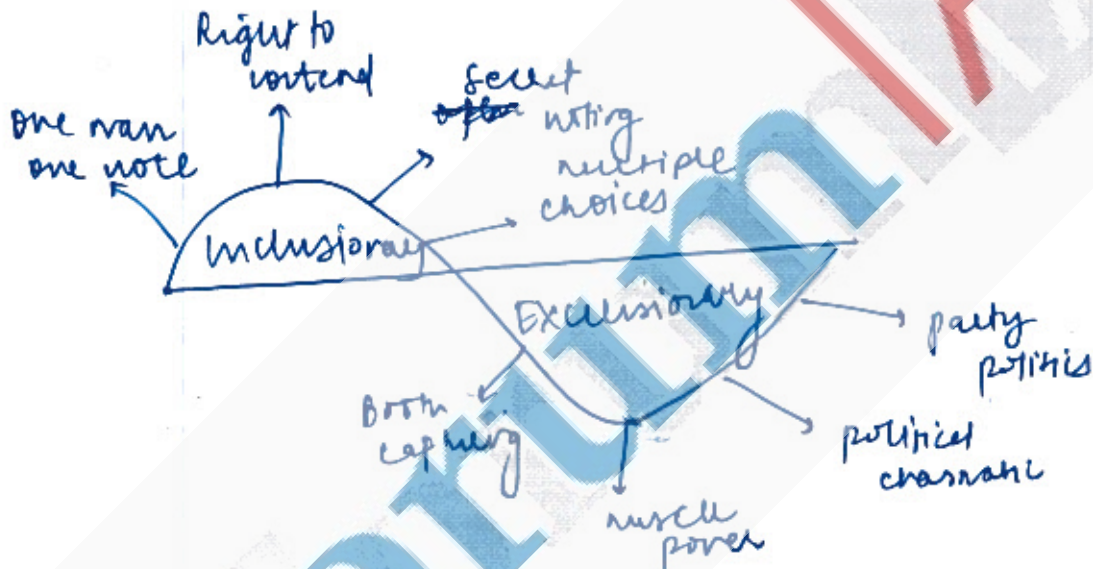 Right to
contend
one man
one vote
secret
voting
multiple
choices
Inclusionary
Exclusionary
party
politics
Booth
capturing
political
muscle
power
rum